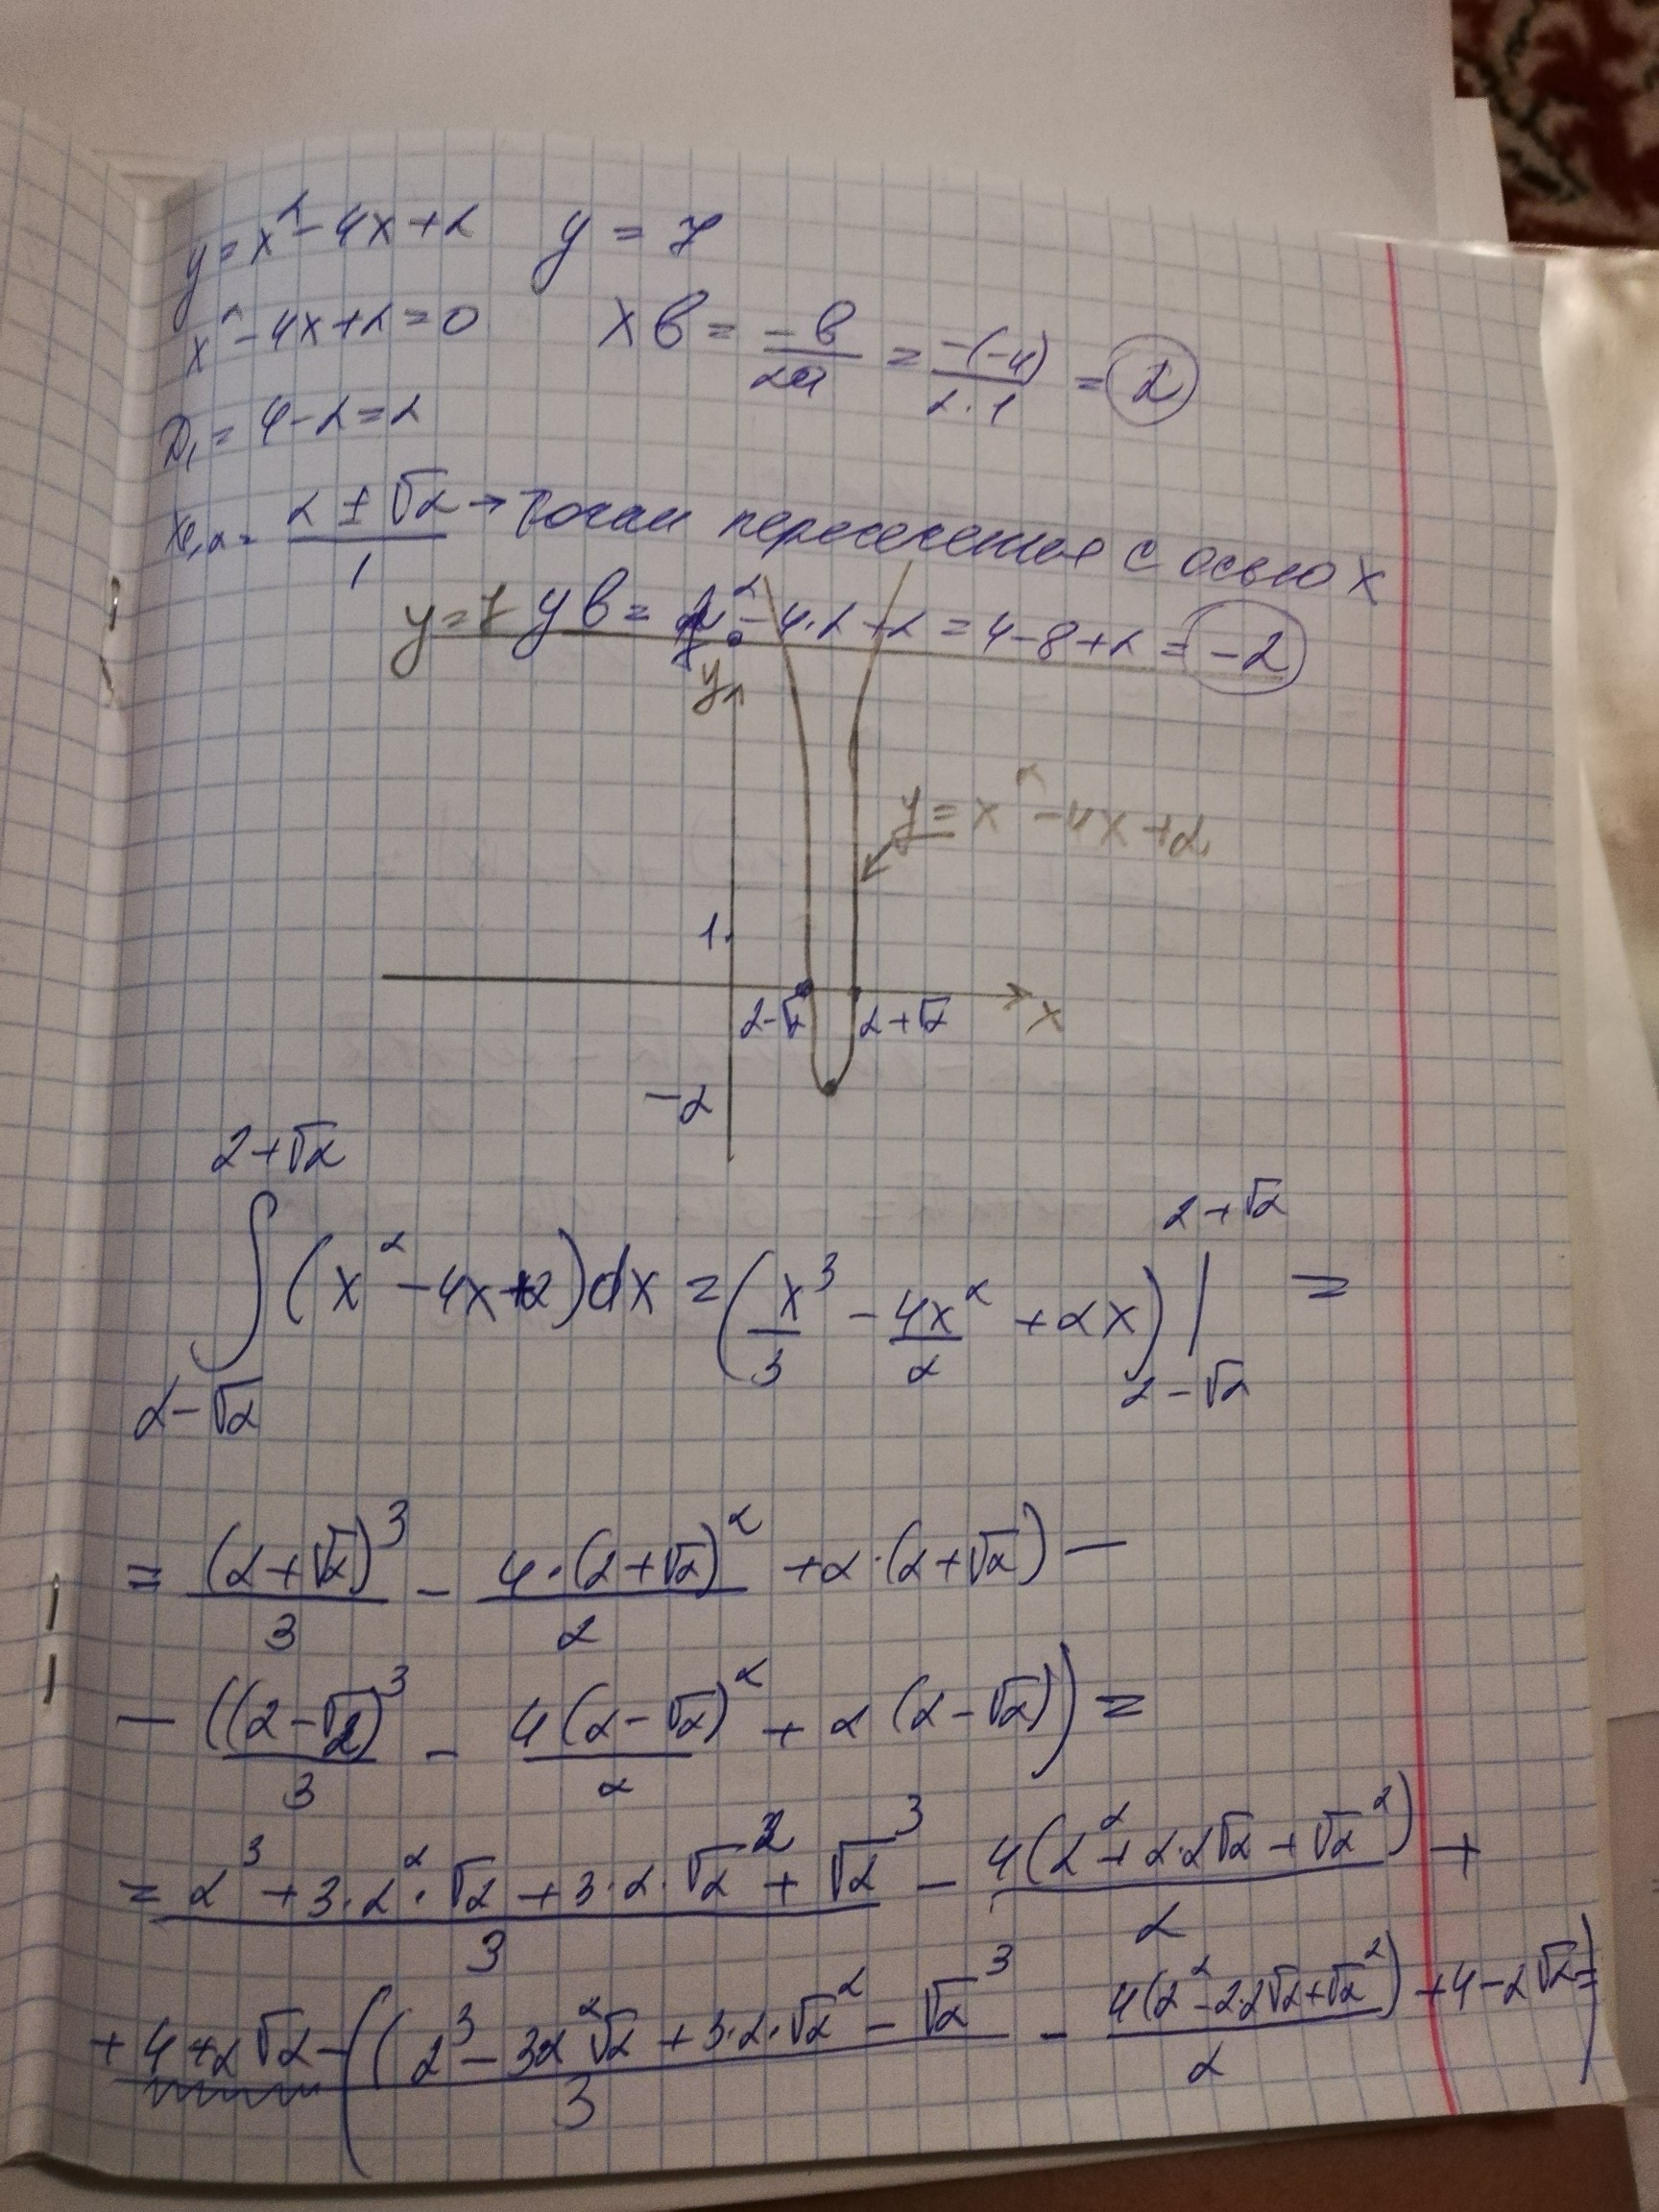 y = x² - 4x + 2    y = 7
x² - 4x + 2 = 0    xв = -в/2a = -(-4)/2·1 = 2
D₁ = 4 - 2 = 2
x₁,₂ = (2 ± √2)/1 → Точки пересечения с осью x
y = 7  yв = 2² - 4·2 + 2 = 4 - 8 + 2 = -2
7
y
y = x² - 4x + 2
1
2-√2  2+√2  x
-2
∫_{2-√2}^{2+√2} (x² - 4x + 2)dx = (x³/3 - 4x²/2 + 2x) |_{2-√2}^{2+√2} =
= (2+√2)³/3 - 4·(2+√2)²/2 + 2·(2+√2) -
- ((2-√2)³/3 - 4(2-√2)²/2 + 2(2-√2)) =
= (2³ + 3·2²·√2 + 3·2·√2² + √2³)/3 - 4(2² + 2·2√2 + √2²)/2 +
+ 4 + 2√2 - ((2³ - 32²√2 + 3·2·√2² - √2³)/3 - 4(2² - 2·2√2 + √2²)/2 + 4 - 2√2) =